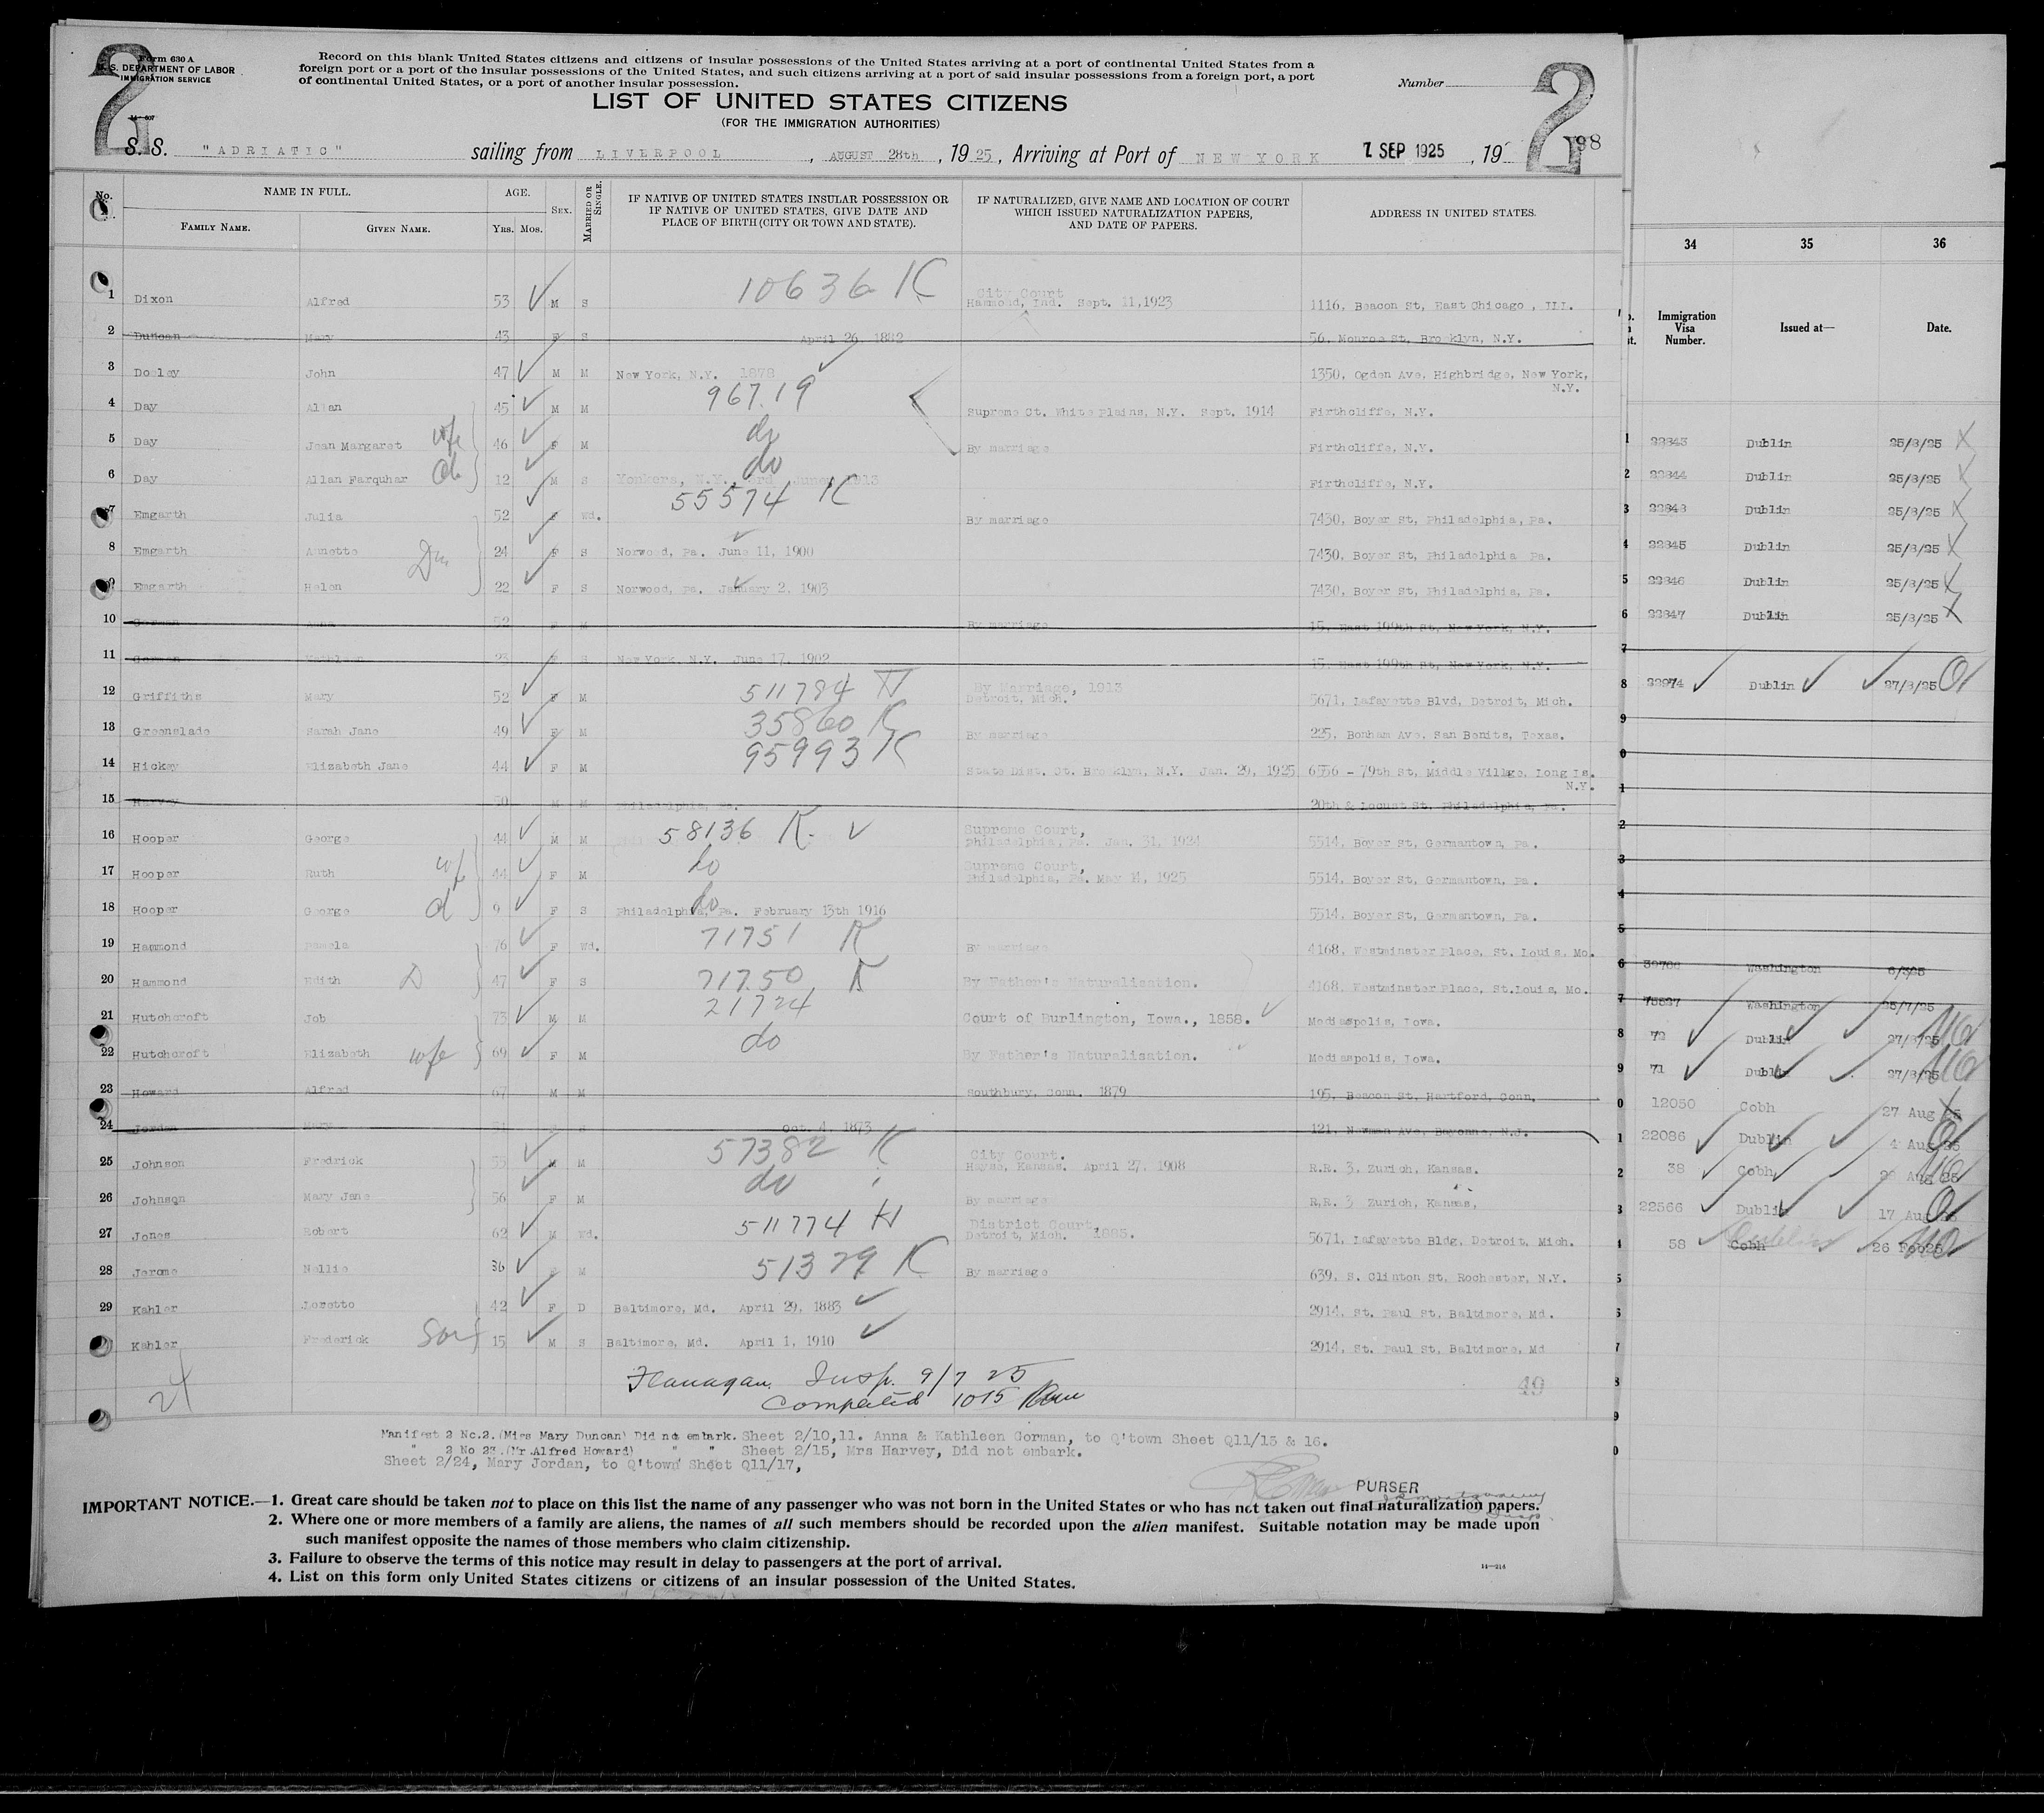 Form 630 A
U. S. DEPARTMENT OF LABOR
IMMIGRATION SERVICE
Record on this blank United States citizens and citizens of insular possessions of the United States arriving at a port of continental United States from a
foreign port or a port of the insular possessions of the United States, and such citizens arriving at a port of said insular possessions from a foreign port, a port
of continental United States, or a port of another insular possession.
Number
2 2
LIST OF UNITED STATES CITIZENS
(FOR THE IMMIGRATION AUTHORITIES)
S. S. "ADRIATIC" sailing from LIVERPOOL, AUGUST 28th, 1925, Arriving at Port of NEW YORK 7 SEP 1925, 19 98
No. NAME IN FULL. AGE. SEX. MARRIED OR SINGLE. IF NATIVE OF UNITED STATES INSULAR POSSESSION OR IF NATIVE OF UNITED STATES, GIVE DATE AND PLACE OF BIRTH (CITY OR TOWN AND STATE). IF NATURALIZED, GIVE NAME AND LOCATION OF COURT WHICH ISSUED NATURALIZATION PAPERS, AND DATE OF PAPERS. ADDRESS IN UNITED STATES.
FAMILY NAME. GIVEN NAME. YRS. MOS.
1 Dixon Alfred 53 M S 10636 K City Court Hammond, Ind. Sept. 11,1923 1116, Beacon St, East Chicago, Ill.
2 Duncan Mary 43 F S April 26, 1882 56, Monroe St, Brooklyn, N.Y.
3 Dooley John 47 M M New York, N.Y. 1878 1350, Ogden Ave, Highbridge, New York, N.Y.
4 Day Allan 45 M M 96719 Supreme Ct. White Plains, N.Y. Sept. 1914 Firthcliffe, N.Y.
5 Day Jean Margaret wfe 46 F M do By marriage Firthcliffe, N.Y.
6 Day Allan Farquhar 12 M S do Yonkers, N.Y. 3rd June 1913 Firthcliffe, N.Y.
7 Emgarth Julia 52 F Wd. 55574 K By marriage 7430, Boyer St, Philadelphia, Pa.
8 Emgarth Annette 24 F S Norwood, Pa. June 11, 1900 7430, Boyer St, Philadelphia Pa.
9 Emgarth Helen 22 F S Norwood, Pa. January 2, 1903 7430, Boyer St, Philadelphia, Pa.
10 Gorman Anna 52 F M By marriage 15, East 199th St, New York, N.Y.
11 Gorman Kathleen 23 F S New York, N.Y. June 17, 1902 15, East 199th St, New York, N.Y.
12 Griffiths Mary 52 F M 511784 By Marriage, 1913 Detroit, Mich. 5671, Lafayette Blvd, Detroit, Mich.
13 Greenslade Sarah Jane 49 F M 35860 K By marriage 225, Bonham Ave, San Benito, Texas.
14 Hickey Elizabeth Jane 44 F M 95993 K State Dist. Ct. Brooklyn, N.Y. Jan. 29, 1925 6556 - 79th St, Middle Village, Long Is. N.Y.
15 Harvey 50 M M Philadelphia, Pa. 20th & Locust St, Philadelphia, Pa.
16 Hooper George 44 M M 58136 K. Supreme Court, Philadelphia, Pa. Jan. 31, 1924 5514, Boyer St, Germantown, Pa.
17 Hooper Ruth wfe 44 F M do Supreme Court, Philadelphia, Pa. May 11, 1925 5514, Boyer St, Germantown, Pa.
18 Hooper George d 9 F S do Philadelphia, Pa. February 13th 1916 5514, Boyer St, Germantown, Pa.
19 Hammond Pamela 76 F Wd. 71751 K By marriage 4168, Westminster Place, St. Louis, Mo.
20 Hammond Edith D 47 F S 71750 K By Father's Naturalisation. 4168, Westminster Place, St.Louis, Mo.
21 Hutchcroft Job 73 M M 21724 Court of Burlington, Iowa., 1858. Mediaspolis, Iowa.
22 Hutchcroft Elizabeth wfe 69 F M do By Father's Naturalisation. Mediaspolis, Iowa.
23 Howard Alfred 67 M M Southbury, Conn. 1879 195, Beacon St, Hartford, Conn.
24 Jordan Mary 51 F S Oct. 4, 1873 121, Newman Ave, Bayonne, N.J.
25 Johnson Fredrick 55 M M 57382 K City Court. Hayse, Kansas. April 27, 1908 R.R. 3, Zurich, Kansas.
26 Johnson Mary Jane 56 F M do By marriage R.R. 3 Zurich, Kansas.
27 Jones Robert 62 M Wd. 511774 H District Court, Detroit, Mich. 1885. 5671, Lafayette Bldg, Detroit, Mich.
28 Jerome Nellie 36 F M 51379 K By marriage 639, S. Clinton St, Rochester, N.Y.
29 Kahler Loretto 42 F D Baltimore, Md. April 29, 1883 2914, St. Paul St, Baltimore, Md.
30 Kahler Frederick Son 15 M S Baltimore, Md. April 1, 1910 2914, St. Paul St, Baltimore, Md
24 Flanagan Insp. 9/7 25 49
Completed 1015
Manifest 2 No.2. (Miss Mary Duncan) Did not embark. Sheet 2/10,11. Anna & Kathleen Gorman, to Q'town Sheet Q11/15 & 16.
" 2 No 23.(Mr.Alfred Howard) " " Sheet 2/15, Mrs Harvey, Did not embark.
Sheet 2/24, Mary Jordan, to Q'town Sheet Q11/17,
PURSER
IMPORTANT NOTICE.—1. Great care should be taken not to place on this list the name of any passenger who was not born in the United States or who has not taken out final naturalization papers.
2. Where one or more members of a family are aliens, the names of all such members should be recorded upon the alien manifest. Suitable notation may be made upon
such manifest opposite the names of those members who claim citizenship.
3. Failure to observe the terms of this notice may result in delay to passengers at the port of arrival.
4. List on this form only United States citizens or citizens of an insular possession of the United States.
14—214
34 35 36
Immigration Visa Number. Issued at— Date.
1 22843 Dublin 25/8/25
2 22844 Dublin 25/8/25
3 22848 Dublin 25/8/25
4 22845 Dublin 25/8/25
5 22846 Dublin 25/8/25
6 22847 Dublin 25/8/25
7
8 22974 Dublin 27/8/25
9
0
1
2
3
4
5
6 39766 Washington 6/325
7 75537 Washington 25/7/25
8 72 Dublin 27/8/25
9 71 Dublin 27/8/25
0 12050 Cobh 27 Aug 25
1 22086 Dublin 4 Aug 25
2 38 Cobh Aug 25
3 22566 Dublin 17 Aug 25
4 58 Cobh Dublin 26 Feb25
5
6
7
8
9
0